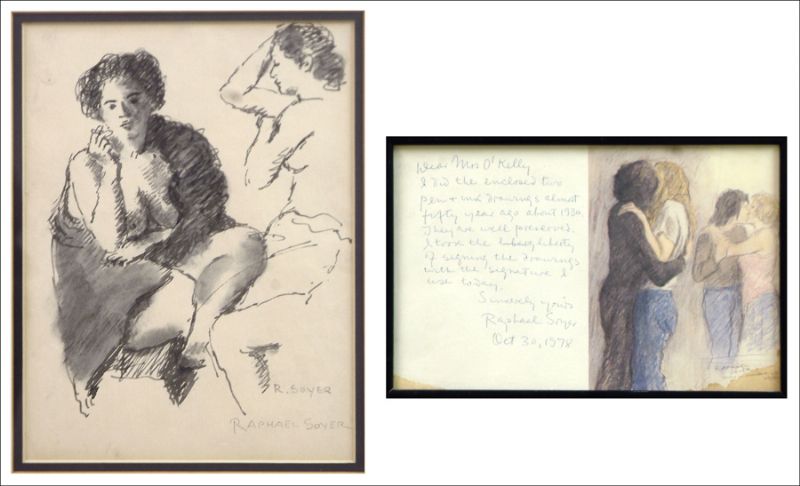 R. SOYER
RAPHAEL SOYER
Dear Mrs O'Kelly
I did the enclosed two
pen & ink drawings almost
fifty year ago about 1930.
They are well preserved.
I took the liberty
of signing the drawings
with the signature I
use today.
Sincerely yours
Raphael Soyer
Oct 30, 1978